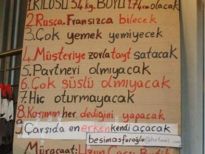 1.KİLOSU 54 kg. BOYU 1.74 m olacak
2.Rusca, Fransızca bilecek
3.Çok yemek yemiyecek
4.Müşteriye zorla tayt satacak
5.Partneri olmıyacak
6.Çok süslü olmıyacak
7.Hiç oturmayacak
8.Kocaman her dediğini yapacak
9.Çarşıda en erken kendi açacak
Müracaat: